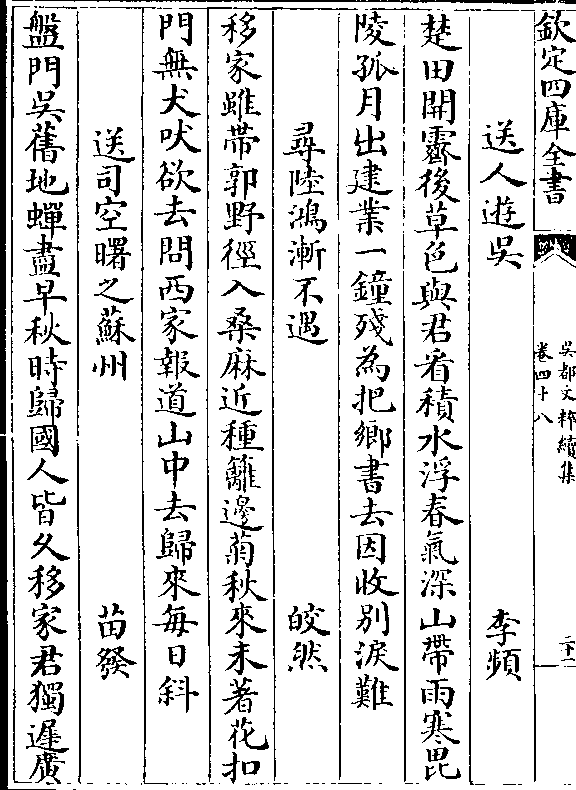 欽定四庫全書
吳都文粹續集
卷四十八
送人遊吳 李頻
楚田開霽後草色與君看積水浮春氣深山帶雨寒毘
陵孤月出建業一鐘殘為把鄉書去因收別淚難
尋陸鴻漸不遇 皎然
移家雖帶郭野徑入桑麻近種籬邊菊秋來未著花扣
門無犬吠欲去問西家報道山中去歸來每日斜
送司空曙之蘇州 苗發
盤門吳舊地蟬盡早秋時歸國人皆久移家君獨遲廣